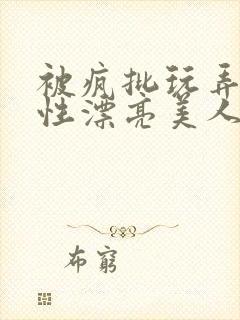 被疯批玩弄
性漂亮美人
布窮